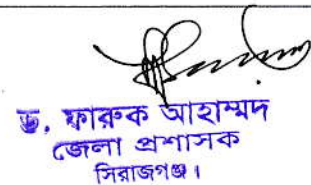 ড. ফারুক আহাম্মদ
জেলা প্রশাসক
সিরাজগঞ্জ।